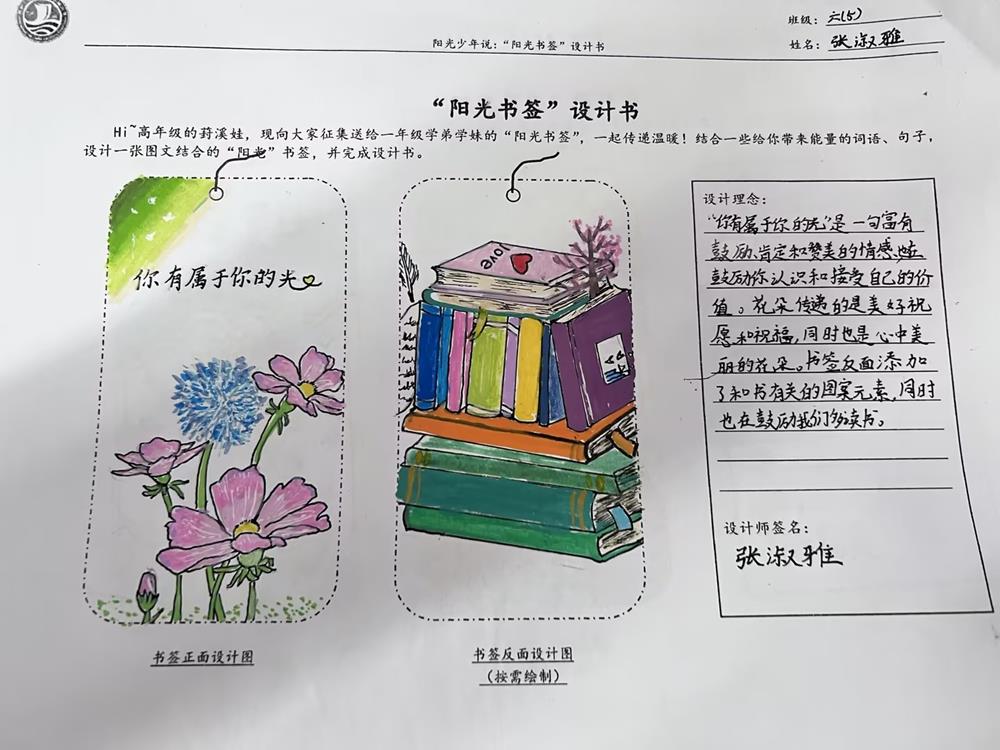 班级：六(5)
阳光少年说：“阳光书签”设计书
姓名：张淑雅
“阳光书签”设计书
Hi~高年级的莳溪娃，现向大家征集送给一年级学弟学妹的“阳光书签”，一起传递温暖！结合一些给你带来能量的词语、句子，
设计一张图文结合的“阳光”书签，并完成设计书。
你有属于你的光
love
设计理念：
“你有属于你的光”是一句富有
鼓励、肯定和赞美的情感，也在
鼓励你认识和接受自己的价
值。花朵传递的是美好祝
愿和祝福，同时也是心中美
丽的花朵。书签反面添加
了和书有关的图案元素，同时
也在鼓励我们多读书。
设计师签名：
张淑雅
书签正面设计图
书签反面设计图
（按需绘制）